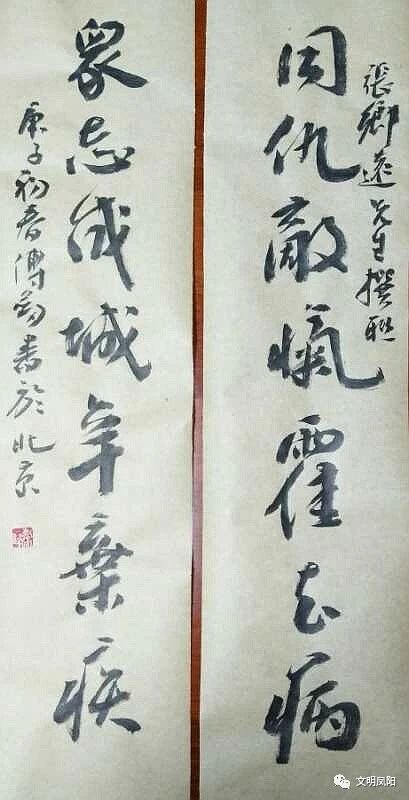 張鄉遠先生撰聯
同仇敵愾霍去病
眾志成城辛棄疾
庚子初春傅書於北京
文明凤阳